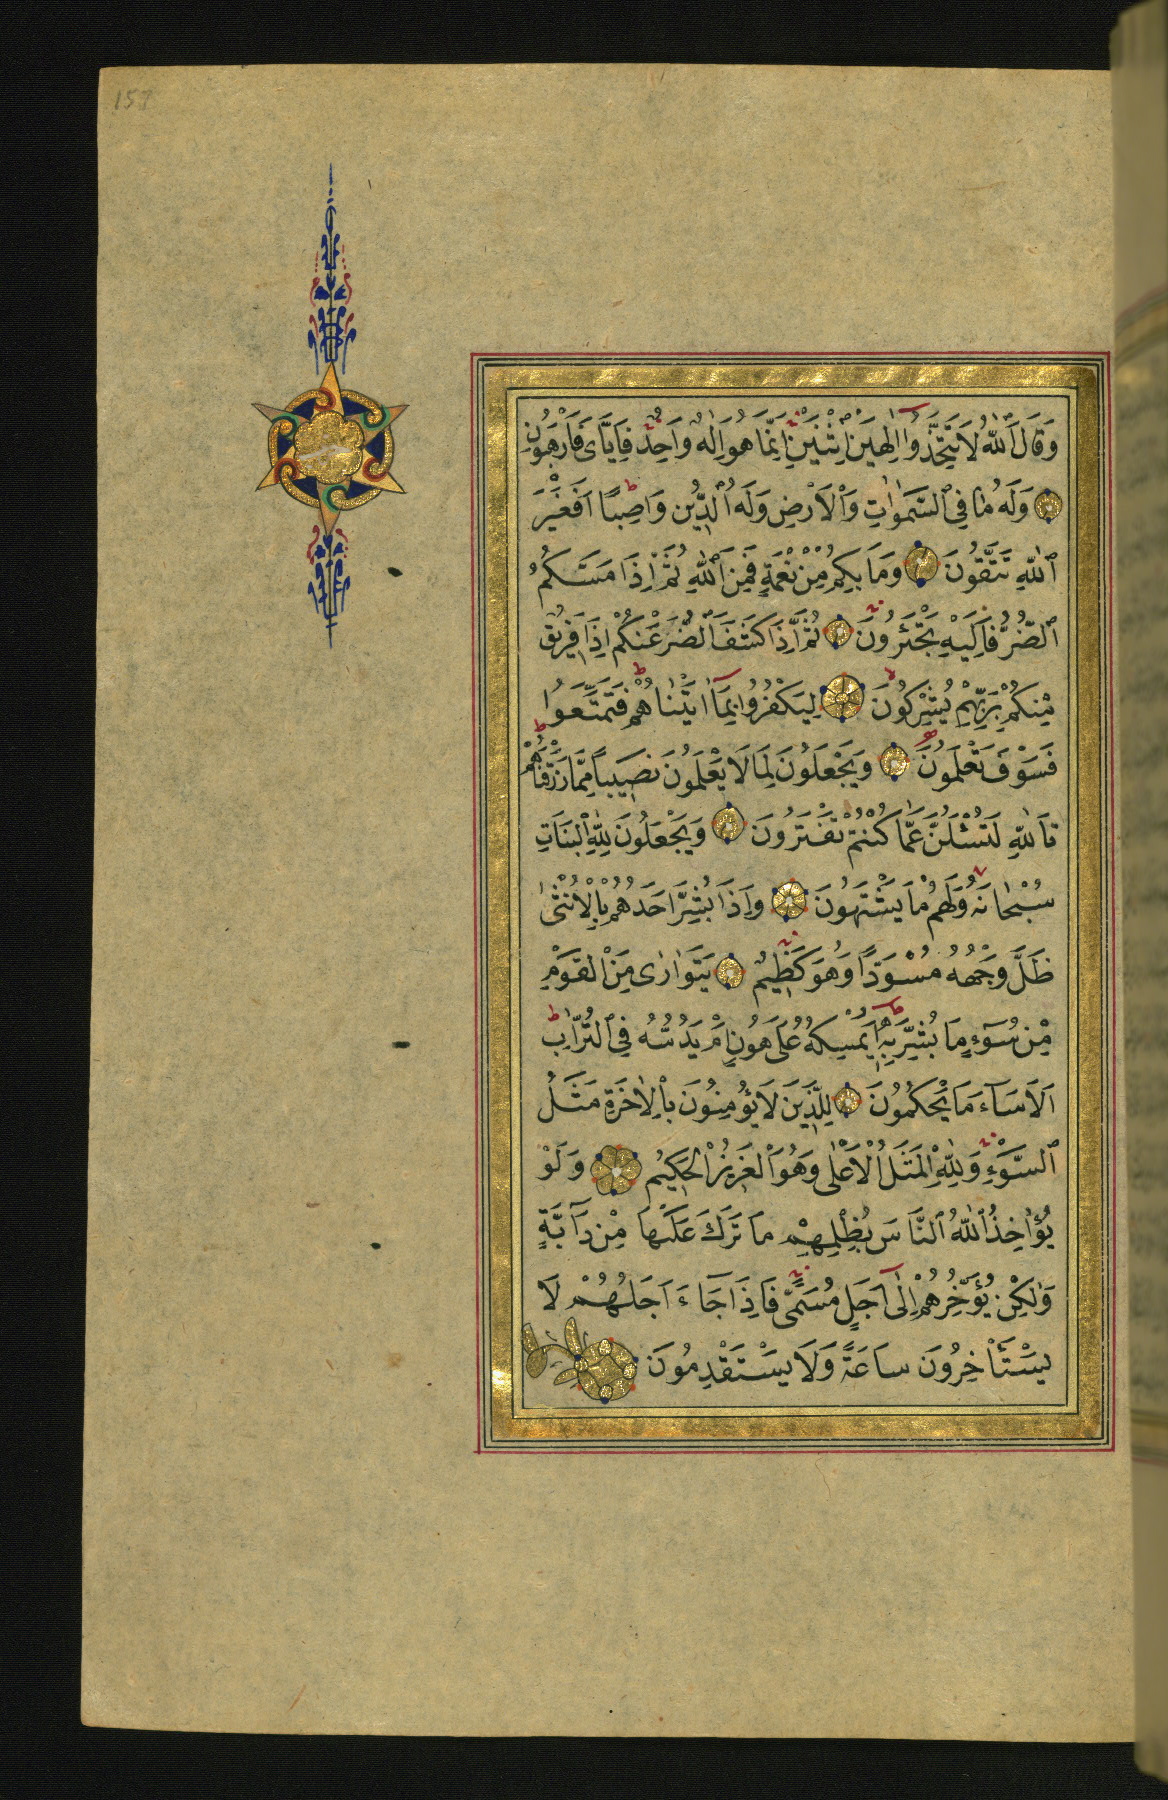 157
وَقَالَ ٱللّٰهُ لَا تَتَّخِذُوا اِلٰهَيْنِ اثْنَيْنِ اِنَّمَا هُوَ اِلٰهٌ وَاحِدٌ فَاِيَّاىَ فَارْهَبُونِ
وَلَهُ مَا فِي ٱلسَّمٰوَاتِ وَٱلْاَرْضِ وَلَهُ ٱلدِّينُ وَاصِبًا اَفَغَيْرَ
ٱللّٰهِ تَتَّقُونَ وَمَا بِكُمْ مِنْ نِعْمَةٍ فَمِنَ ٱللّٰهِ ثُمَّ اِذَا مَسَّكُمُ
ٱلضُّرُّ فَاِلَيْهِ تَجْئَرُونَ ثُمَّ اِذَا كَشَفَ ٱلضُّرَّ عَنْكُمْ اِذَا فَرِيقٌ
مِنْكُمْ بِرَبِّهِمْ يُشْرِكُونَ لِيَكْفُرُوا بِمَا اٰتَيْنَاهُمْ فَتَمَتَّعُوا
فَسَوْفَ تَعْلَمُونَ وَيَجْعَلُونَ لِمَا لَا يَعْلَمُونَ نَصِيبًا مِمَّا رَزَقْنَاهُمْ
تَاللّٰهِ لَتُسْئَلُنَّ عَمَّا كُنْتُمْ تَفْتَرُونَ وَيَجْعَلُونَ لِلّٰهِ ٱلْبَنَاتِ
سُبْحَانَهُ وَلَهُمْ مَا يَشْتَهُونَ وَاِذَا بُشِّرَ اَحَدُهُمْ بِالْاُنْثٰى
ظَلَّ وَجْهُهُ مُسْوَدًّا وَهُوَ كَظِيمٌ يَتَوَارٰى مِنَ الْقَوْمِ
مِنْ سُوٓءِ مَا بُشِّرَ بِهِ اَيُمْسِكُهُ عَلٰى هُونٍ اَمْ يَدُسُّهُ فِي ٱلتُّرَابِ
اَلَا سَآءَ مَا يَحْكُمُونَ لِلَّذِينَ لَا يُؤْمِنُونَ بِالْاٰخِرَةِ مَثَلُ
ٱلسَّوْءِ وَلِلّٰهِ الْمَثَلُ الْاَعْلٰى وَهُوَ الْعَزِيزُ الْحَكِيمُ وَلَوْ
يُؤَاخِذُ ٱللّٰهُ ٱلنَّاسَ بِظُلْمِهِمْ مَا تَرَكَ عَلَيْهَا مِنْ دَآبَّةٍ
وَلٰكِنْ يُؤَخِّرُهُمْ اِلٰى اَجَلٍ مُسَمًّى فَاِذَا جَآءَ اَجَلُهُمْ لَا
يَسْتَأْخِرُونَ سَاعَةً وَلَا يَسْتَقْدِمُونَ